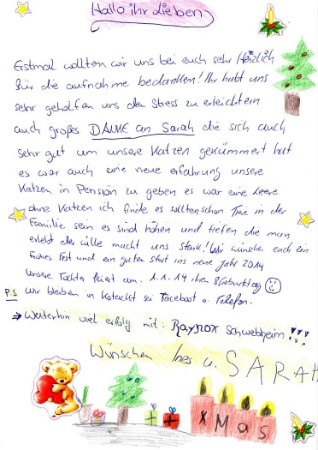 Hallo ihr Lieben
Erstmal wollten wir uns bei euch sehr Herzlich
für die aufnahme bedanken! Ihr habt uns
sehr geholfen uns den Stress zu erleichtern
auch großes DANKE an Sarah die sich auch
sehr gut um unsere Katzen gekümmert hat
es war auch eine neue erfahrung unsere
Katzen in Pension zu geben es war eine leere
ohne Katzen ich finde es sollten schon Tiere in der
Familie sein es sind höhen und tiefen die man
erlebt die alle macht uns stark! Wir wünschen euch ein
Frohes Fest und ein guten start ins neue Jahr 2014
Unsere Tochter feiert am 1.1.14 ihren 8 Geburtstag
P.S wir bleiben in Kontackt sei Facebook o. Telefon.
→ Weiterhin viel erfolg mit: Raynox Schwebheim!!!
Wünschen Ines u. SARAH
XMAS